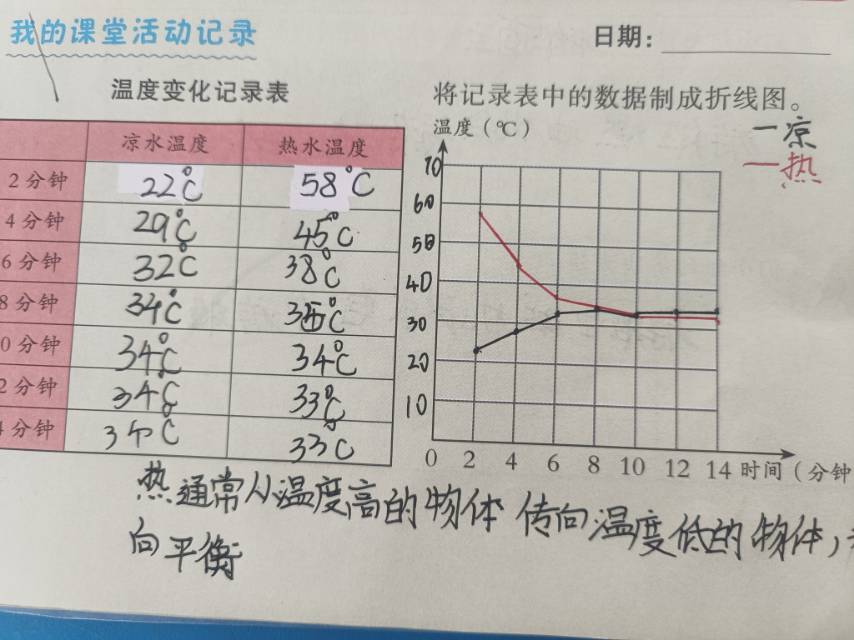 我的课堂活动记录
日期：
温度变化记录表
将记录表中的数据制成折线图。
凉水温度 热水温度
2分钟 22℃ 58℃
4分钟 29℃ 45℃
6分钟 32℃ 38℃
8分钟 34℃ 35℃
0分钟 34℃ 34℃
2分钟 34℃ 33℃
4分钟 34℃ 33℃
温度（℃）
一凉
一热
70
60
50
40
30
20
10
0 2 4 6 8 10 12 14 时间（分钟
热通常从温度高的物体传向温度低的物体，
向平衡